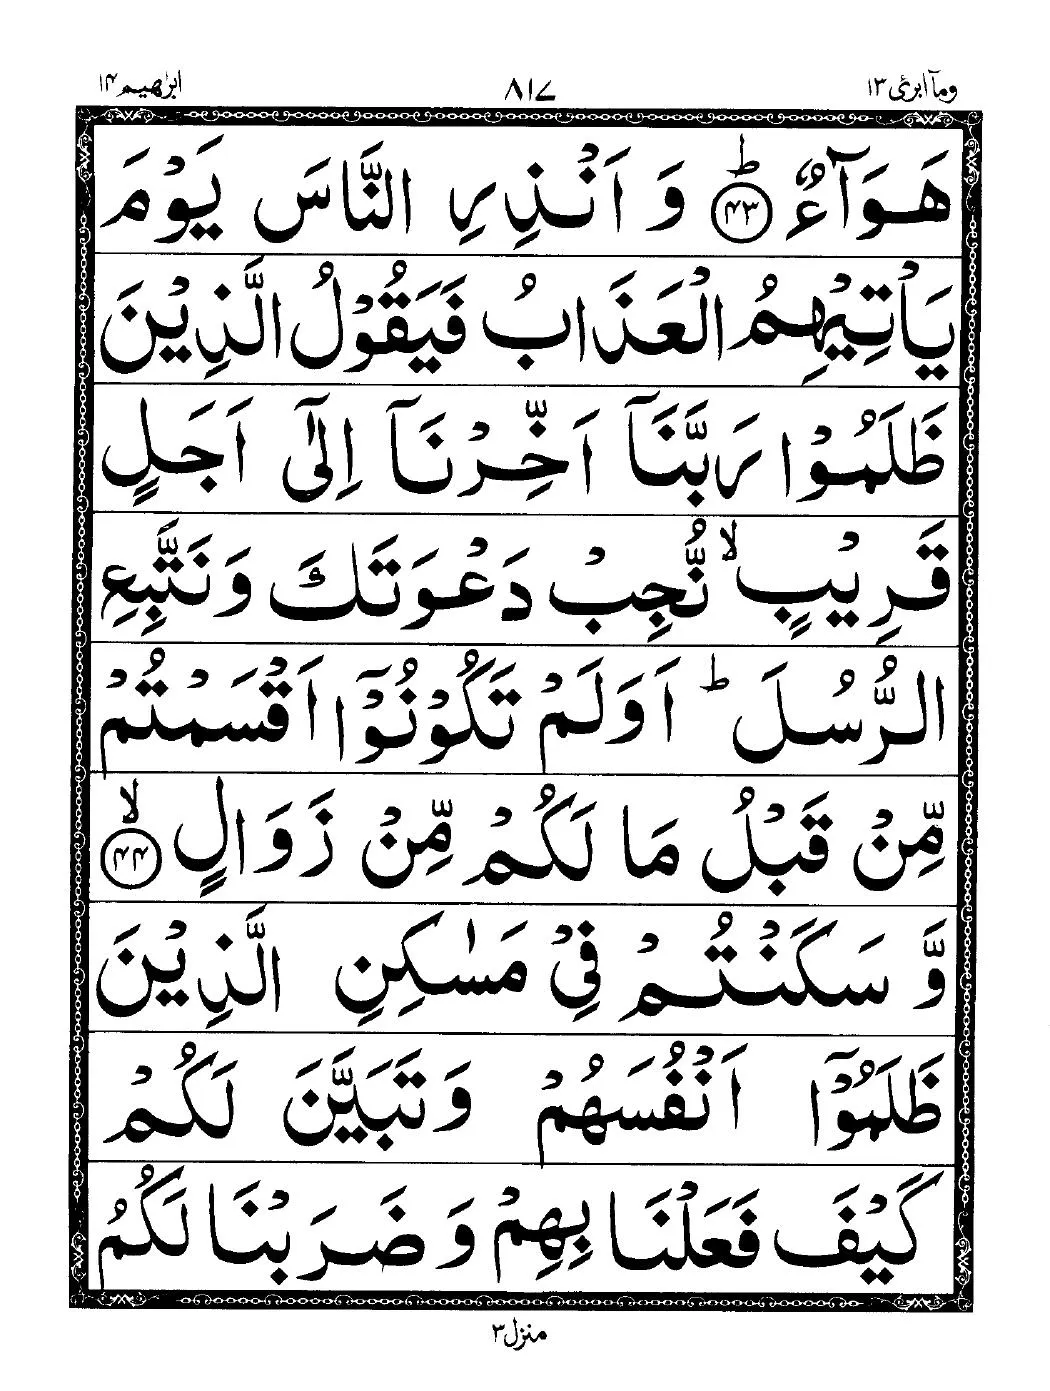 وما ابرئ ۱۳ ۸۱۷ ابرٰهیم ۱۴
هَوَآءٌ ؕ‏﴿۴۳﴾ وَ اَنْذِرِ النَّاسَ یَوْمَ
یَاْتِیْهِمُ الْعَذَابُ فَیَقُوْلُ الَّذِیْنَ
ظَلَمُوْا رَبَّنَآ اَخِّرْنَآ اِلٰۤی اَجَلٍ
قَرِیْبٍ ۙ نُّجِبْ دَعْوَتَكَ وَنَتَّبِعِ
الرُّسُلَ ؕ اَوَلَمْ تَكُوْنُوْۤا اَقْسَمْتُمْ
مِّنْ قَبْلُ مَا لَكُمْ مِّنْ زَوَالٍ ۙ‏﴿۴۴﴾
وَّ سَكَنْتُمْ فِیْ مَسٰكِنِ الَّذِیْنَ
ظَلَمُوْۤا اَنْفُسَهُمْ وَتَبَیَّنَ لَكُمْ
كَیْفَ فَعَلْنَا بِهِمْ وَ ضَرَبْنَا لَكُمُ
منزل ۳